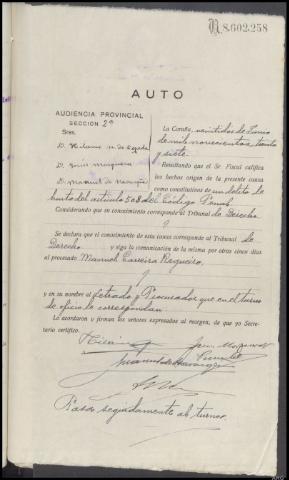 R.8.602.258
AUTO
AUDIENCIA PROVINCIAL
SECCION 2ª
Sres.
D.
D. Luis
D. Manuel de
La Coruña, veintidos de Junio
de mil novecientos treinta
y siete.
Resultando que el Sr. Fiscal califica
los hechos origen de la presente causa
como constitutivos de un delito de
hurto del artículo 508 del Código Penal
Considerando que en conocimiento corresponde al Tribunal de Derecho
Se declara que el conocimiento de esta causa corresponde al Tribunal de
Derecho y siga la comunicación de la misma por otros cinco días
al procesado Manuel Carreira Regueiro,
y en su nombre al Letrado y Procurador que en el turno
de oficio le correspondan
Lo acordaron y firman los señores expresados al margen, de que yo Secre-
tario certifico.
Pasó seguidamente al turno.